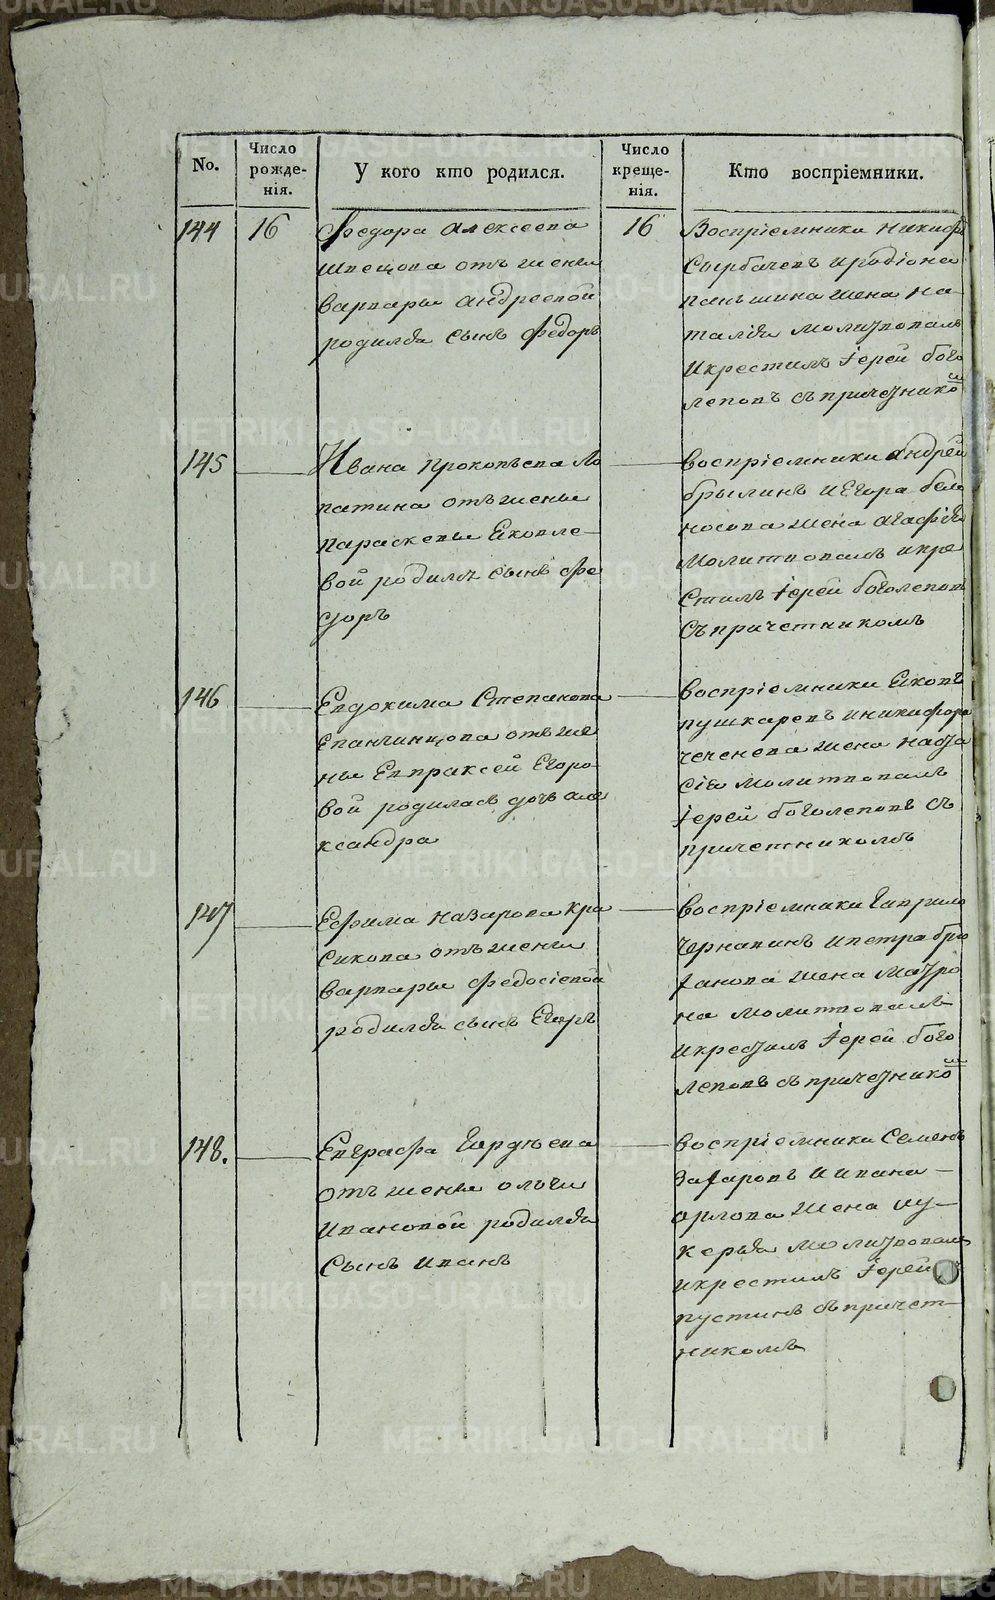 No.
Число рожде-нія.
У кого кто родился.
Число креще-нія.
Кто воспріемники.
144
16
Федора Алексеева
Швецова отъ жены
варвары андреевой
родился сынъ Федоръ
16
Воспріемники никиф
Сырбачевъ иродіона
паньшина жена на-
талія молитвовалъ
икрестилъ іерей бого
леповъ съ причетнико
м
145
Ивана прокопьева Ло
патина отъ жены
параскевы Яковле-
вой родилс сынъ Фе
доръ
воспріемники андрей
брылинъ иЕгора бело
носова жена агафія
молитвовалъ икре
стилъ іерей боголепов
съ причетникомъ
146
Евдокима Степанова
Епанчинцова отъ же
ны Евпраксеи Егоро
вой родилась дочь але
ксандра
воспріемники Яковъ
пушкаревъ иникифора
чеченева жена наста
сія молитвовалъ
іерей боголеповъ съ
причетникомъ
147
Ефима назарова кра
сикова отъ жены
варвары федосіевой
родился сынъ Егоръ
воспріемники гаврило
Чернавинъ ипетра брю
ханова жена матро
на молитвовалъ
икрестилъ іерей бого
леповъ съ причетнико
м
148.
Евграфа Гордѣева
отъ жены ольги
ивановой родился
сынъ иванъ
воспріемники Семенъ
захаровъ иивана
орлова жена лу-
керья молитвовалъ
икрестилъ іерей
пустинъ съ причет-
никомъ
METRIKI.GASO-URAL.RU